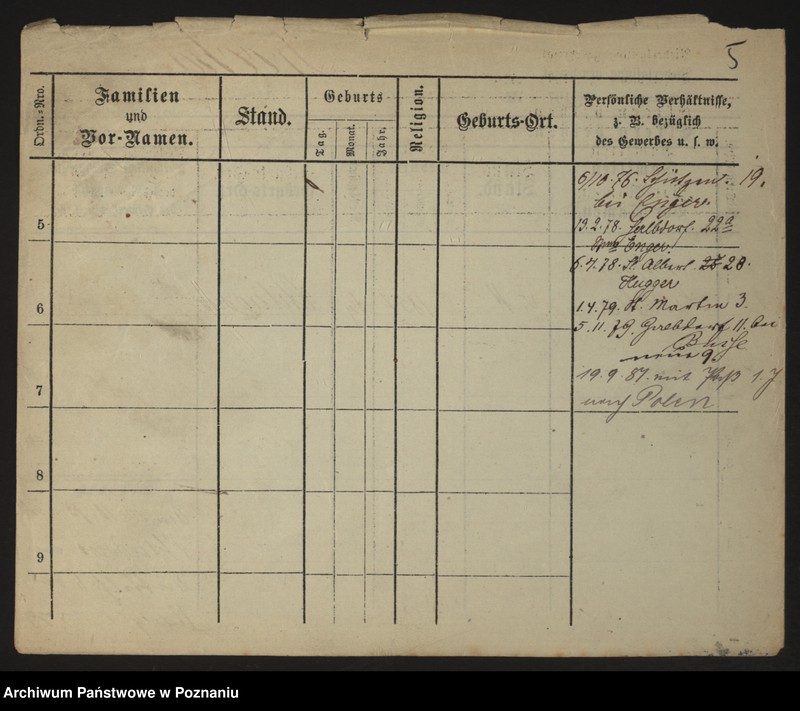 5
Ordn.-Nro.
Familien
und
Vor-Namen.
Stand.
Geburts
Tag.
Monat.
Jahr.
Religion.
Geburts-Ort.
Persönliche Verhältnisse,
z. B. bezüglich
des Gewerbes u. s. w.
6/10.76. Schützen 19.
bei
13.2.78. Halbdorf. 22a
6.4.78. St. Albert 28.
Hugger
1.4.79. St. Martin 3.
5.11.79. Halbdorf 11. bei
Busse
neue 9.
19.9.87. mit Paß 1 J
nach Polen
5
6
7
8
9
Archiwum Państwowe w Poznaniu